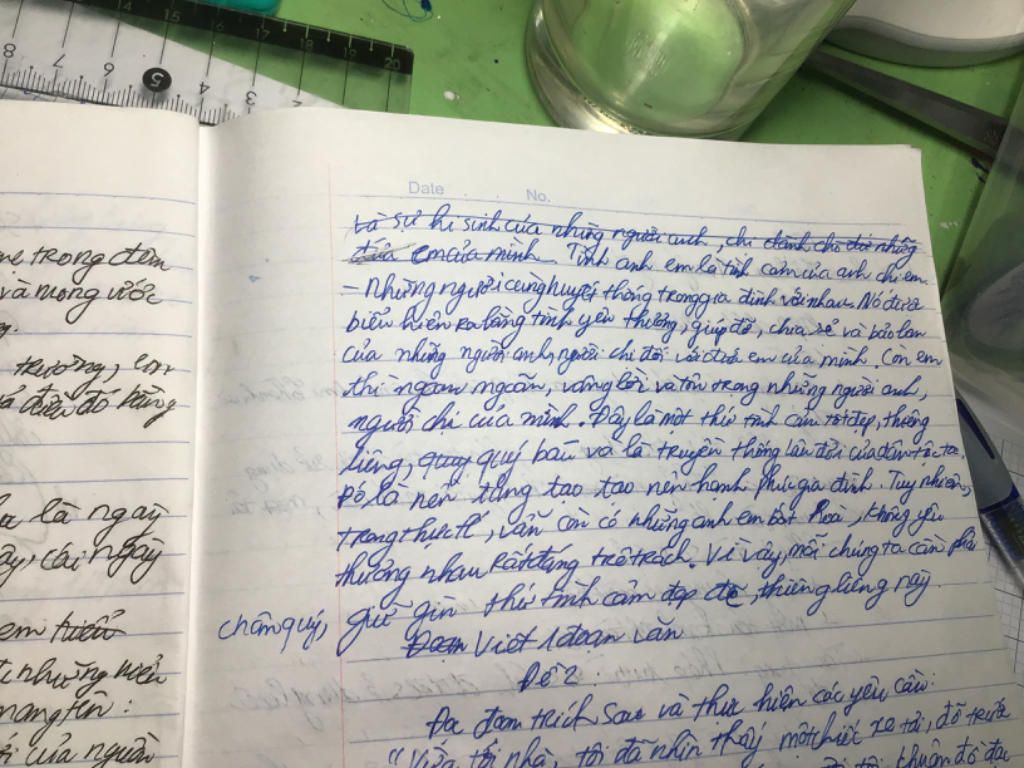 8 7 6 5 4 3
14 15 16 17 18 19 20
Date No.
là sự hi sinh của những người anh, chị dành cho đứa những
đứa em của mình. Tình anh em là tình cảm của anh chị em
- Những người cùng huyết thống trong gia đình với nhau. Nó được
biểu hiện ra bằng tình yêu thương, giúp đỡ, chia sẻ và bảo ban
của những người anh, người chị đối với đứa em của mình. Còn em
thì ngoan ngoãn, vâng lời và tôn trọng những người anh,
người chị của mình. Đây là một thứ tình cảm tốt đẹp, thiêng
liêng, quy quý báu và là truyền thống lâu đời của dân tộc ta.
Đó là nền tảng tạo tạo nên hạnh phúc gia đình. Tuy nhiên,
trong thực tế, vẫn còn có những anh em bất hoà, không yêu
thương nhau rất đáng trê trách. Vì vậy, mỗi chúng ta cần phải
chân quý, giữ gìn thứ tình cảm đẹp đẽ, thiêng liêng này.
Đoạn Viết 1 đoạn văn
Đề 2:
Đọc đoạn trích sau và thực hiện các yêu cầu:
"Vừa tới nhà, tôi đã nhìn thấy một chiếc xe tải, đỗ trước
khuân đồ đạc
mẹ trong đêm
và mong ước
trường, con
điều đó bằng
là ngày
ấy, cái ngày
em hiểu
những
mang tên:
của người